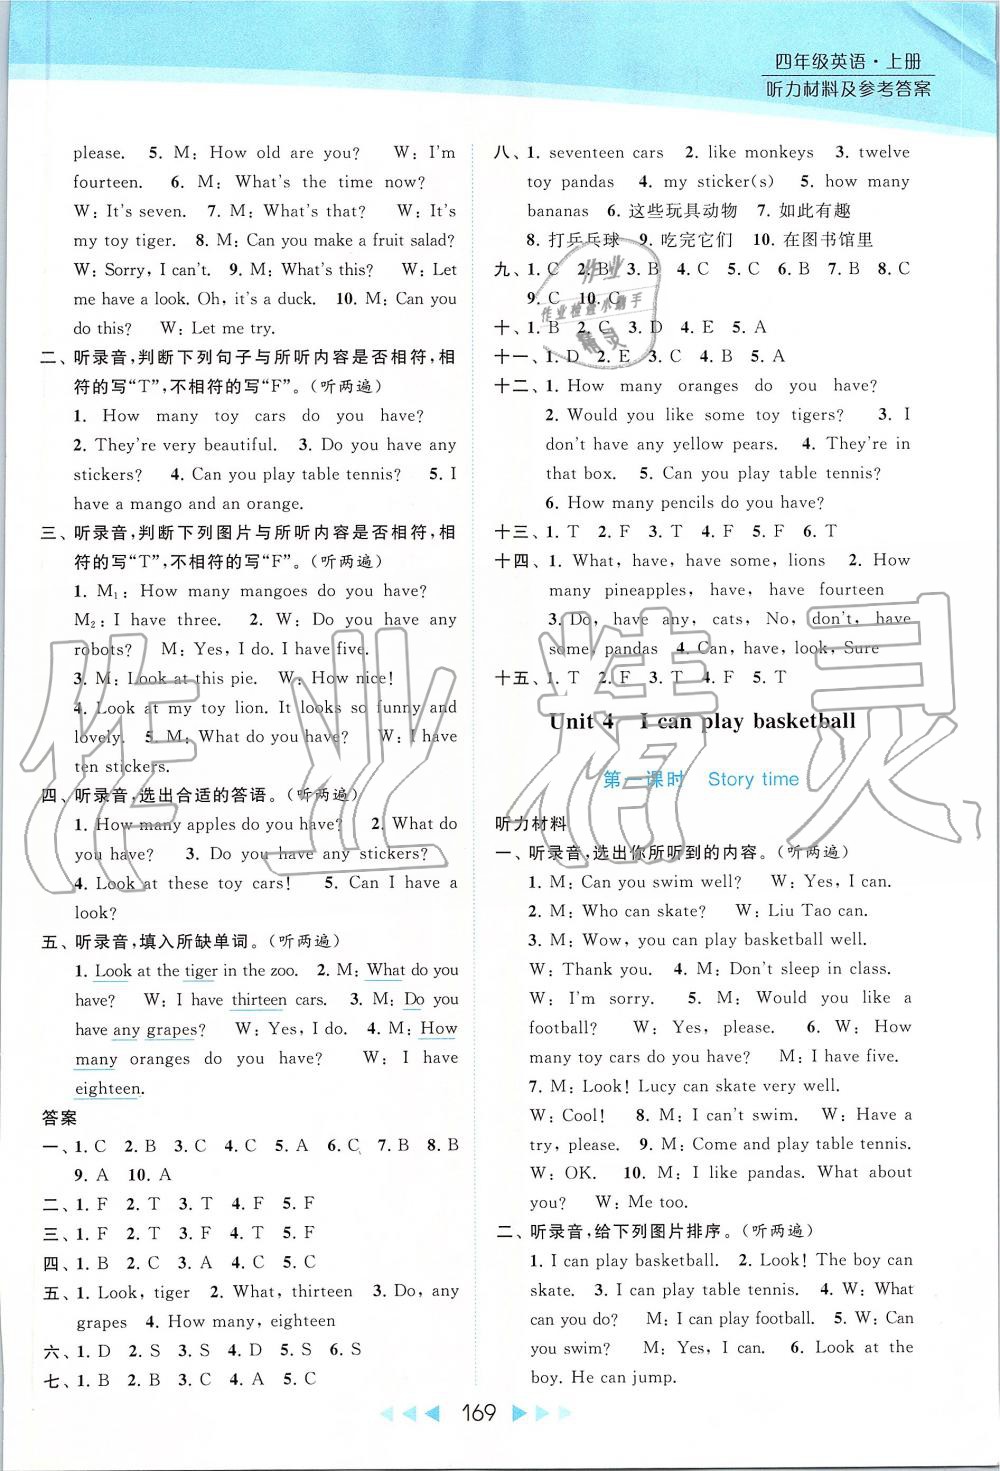 四年级英语·上册
听力材料及参考答案
please. 5. M: How old are you? W: I'm
fourteen. 6. M: What's the time now?
W: It's seven. 7. M: What's that? W: It's
my toy tiger. 8. M: Can you make a fruit salad?
W: Sorry, I can't. 9. M: What's this? W: Let
me have a look. Oh, it's a duck. 10. M: Can you
do this? W: Let me try.
二、听录音,判断下列句子与所听内容是否相符,相
符的写“T”,不相符的写“F”。(听两遍)
1. How many toy cars do you have?
2. They're very beautiful. 3. Do you have any
stickers? 4. Can you play table tennis? 5. I
have a mango and an orange.
三、听录音,判断下列图片与所听内容是否相符,相
符的写“T”,不相符的写“F”。(听两遍)
1. M₁: How many mangoes do you have?
M₂: I have three. 2. W: Do you have any
robots? M: Yes, I do. I have five.
3. M: Look at this pie. W: How nice!
4. Look at my toy lion. It looks so funny and
lovely. 5. M: What do you have? W: I have
ten stickers.
四、听录音,选出合适的答语。(听两遍)
1. How many apples do you have? 2. What do
you have? 3. Do you have any stickers?
4. Look at these toy cars! 5. Can I have a
look?
五、听录音,填入所缺单词。(听两遍)
1. Look at the tiger in the zoo. 2. M: What do you
have? W: I have thirteen cars. 3. M: Do you
have any grapes? W: Yes, I do. 4. M: How
many oranges do you have? W: I have
eighteen.
答案
一、1. C 2. B 3. C 4. C 5. A 6. C 7. B 8. B
9. A 10. A
二、1. F 2. T 3. T 4. F 5. F
三、1. F 2. T 3. F 4. T 5. F
四、1. B 2. C 3. A 4. C 5. C
五、1. Look, tiger 2. What, thirteen 3. Do, any
grapes 4. How many, eighteen
六、1. D 2. S 3. S 4. D 5. S 6. S
七、1. B 2. B 3. C 4. B 5. C
八、1. seventeen cars 2. like monkeys 3. twelve
toy pandas 4. my sticker(s) 5. how many
bananas 6. 这些玩具动物 7. 如此有趣
8. 打乒乓球 9. 吃完它们 10. 在图书馆里
九、1. C 2. B 3. B 4. C 5. C 6. B 7. B 8. C
9. C 10. C
十、1. B 2. C 3. D 4. E 5. A
十一、1. D 2. E 3. C 4. B 5. A
十二、1. How many oranges do you have?
2. Would you like some toy tigers? 3. I
don't have any yellow pears. 4. They're in
that box. 5. Can you play table tennis?
6. How many pencils do you have?
十三、1. T 2. F 3. T 4. F 5. F 6. T
十四、1. What, have, have some, lions 2. How
many pineapples, have, have fourteen
3. Do, have any, cats, No, don't, have
some, pandas 4. Can, have, look, Sure
十五、1. T 2. F 3. T 4. F 5. T
Unit 4 I can play basketball
第一课时 Story time
听力材料
一、听录音,选出你所听到的内容。(听两遍)
1. M: Can you swim well? W: Yes, I can.
2. M: Who can skate? W: Liu Tao can.
3. M: Wow, you can play basketball well.
W: Thank you. 4. M: Don't sleep in class.
W: I'm sorry. 5. M: Would you like a
football? W: Yes, please. 6. W: How
many toy cars do you have? M: I have five.
7. M: Look! Lucy can skate very well.
W: Cool! 8. M: I can't swim. W: Have a
try, please. 9. M: Come and play table tennis.
W: OK. 10. M: I like pandas. What about
you? W: Me too.
二、听录音,给下列图片排序。(听两遍)
1. I can play basketball. 2. Look! The boy can
skate. 3. I can play table tennis. 4. W: What
can you do? M: I can play football. 5. W: Can
you swim? M: Yes, I can. 6. Look at the
boy. He can jump.
169
作业精灵
作业
作业检查小助手
精灵